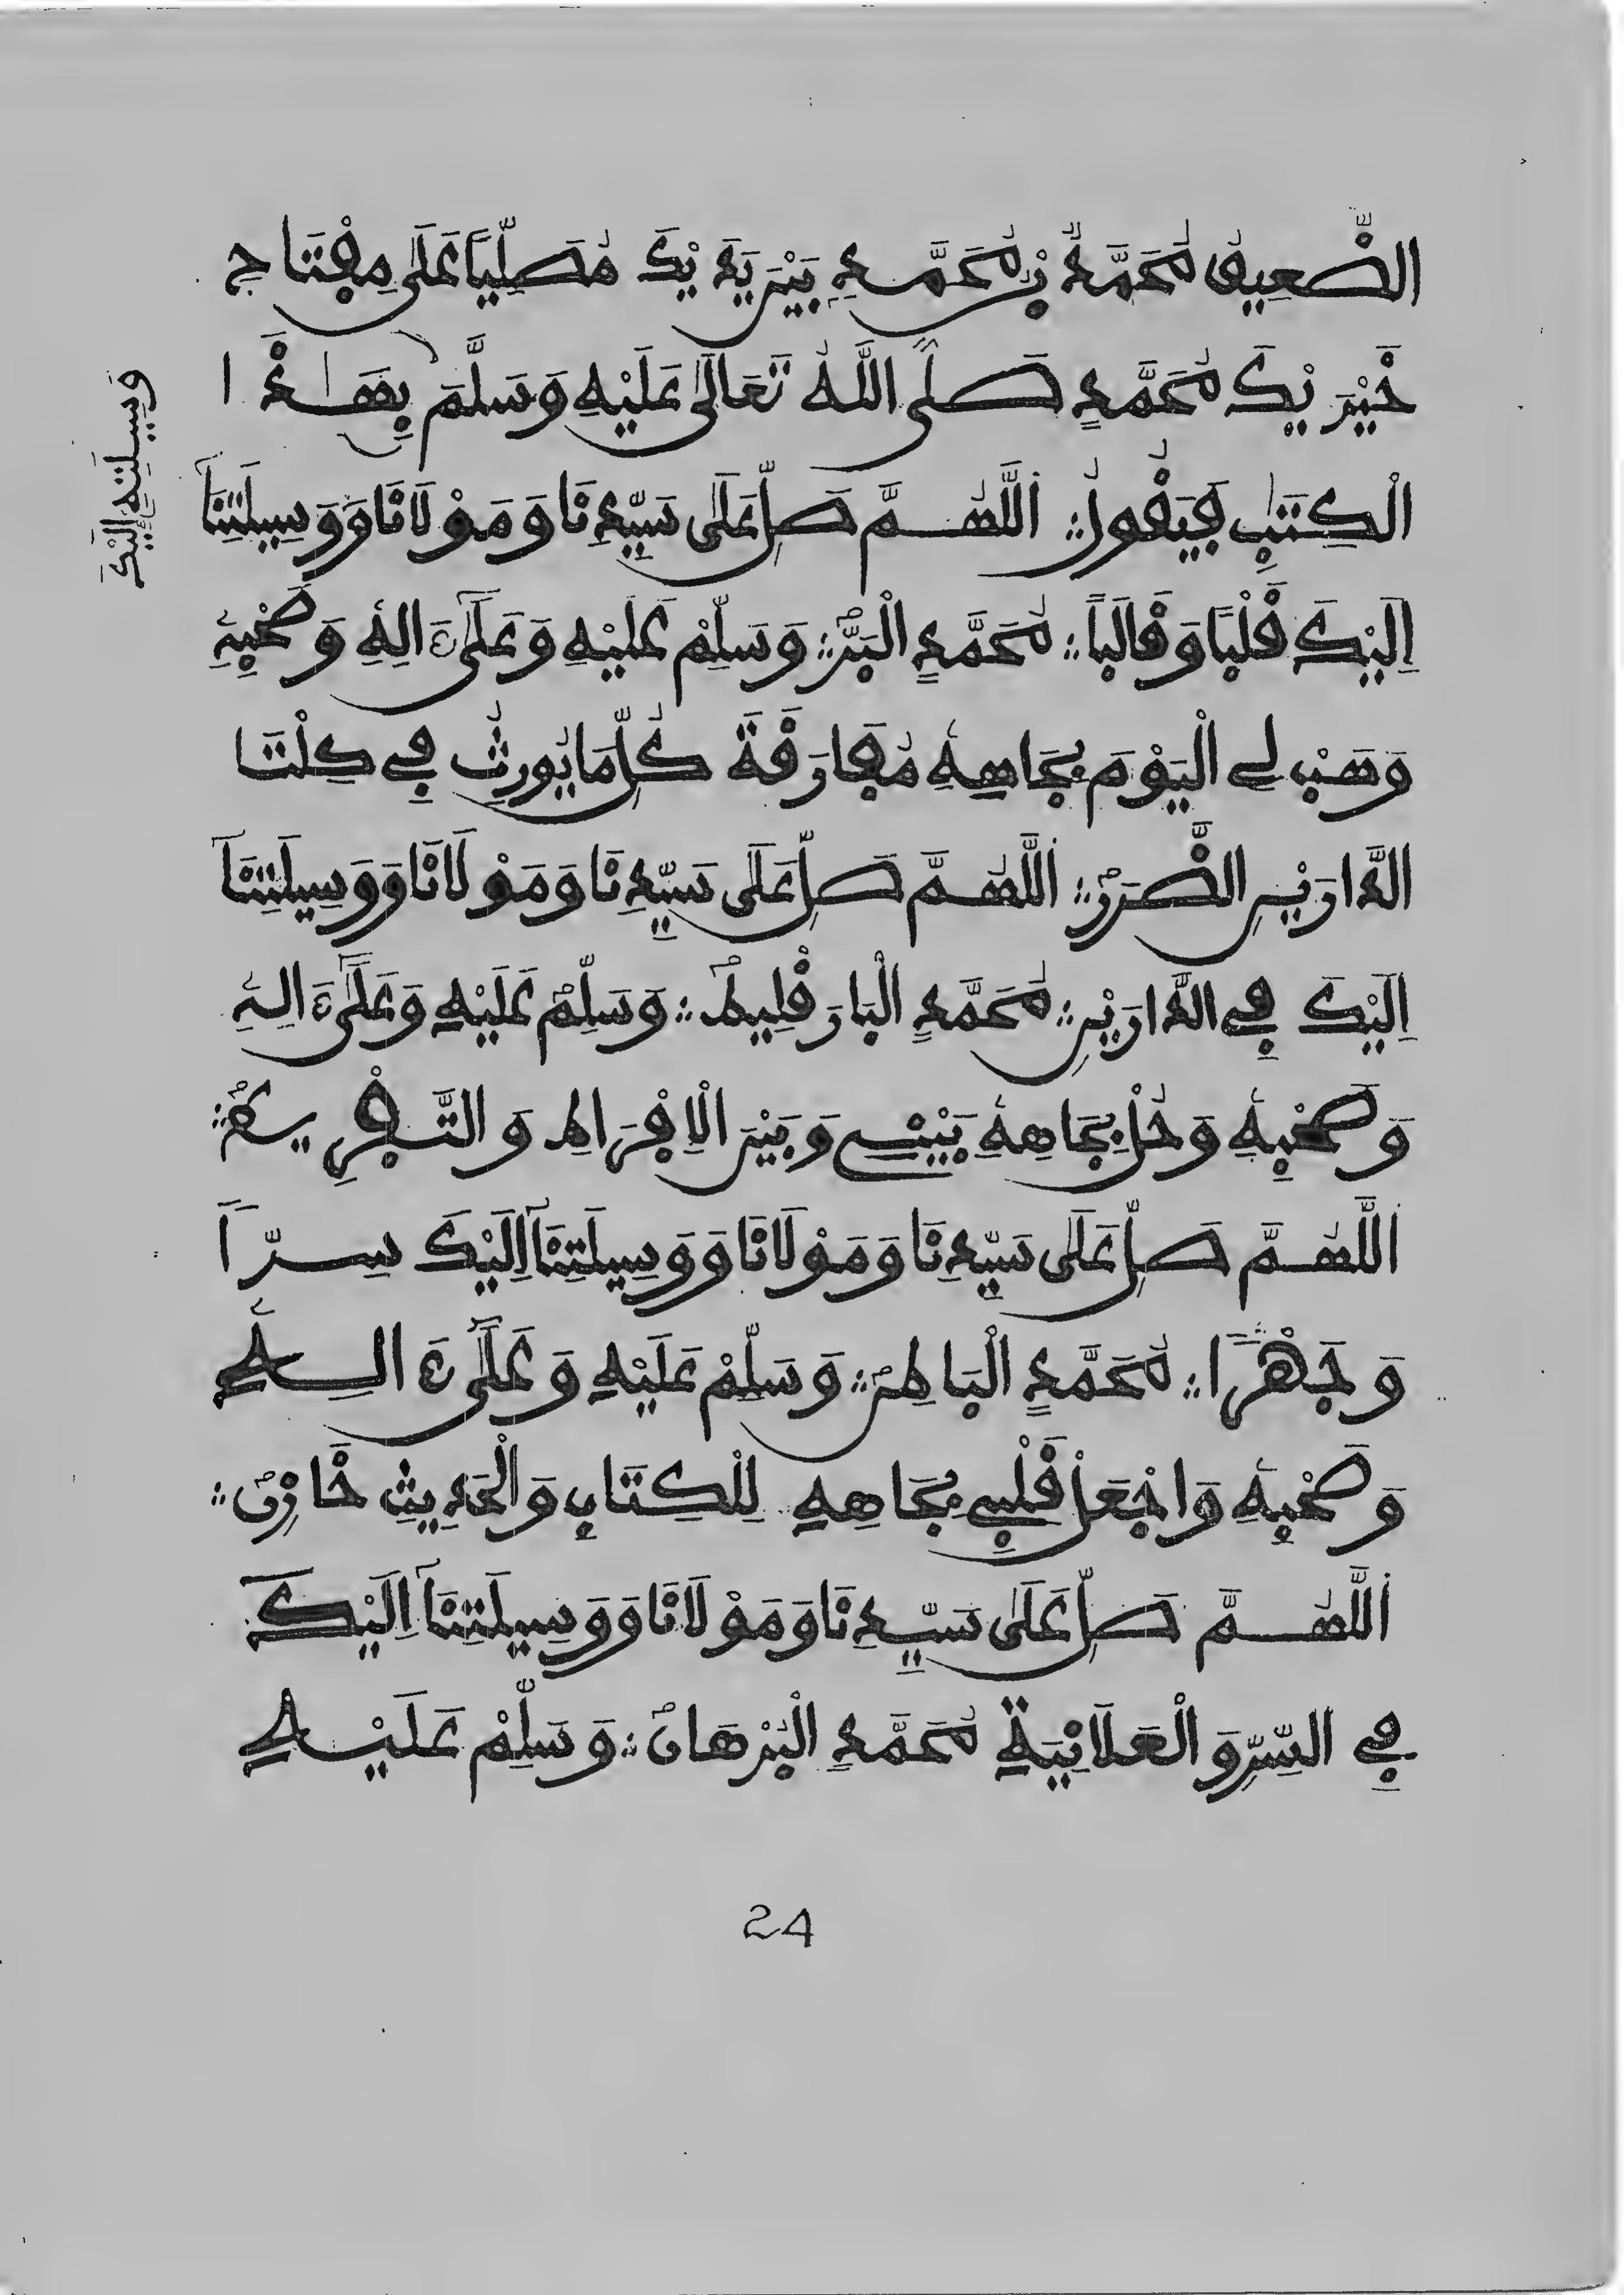 الضَّعِيفُ مُحَمَّدٌ بْنُ مُحَمَّدٍ بَيْنَ يَدَيْكَ مُصَلِّيًا عَلَى مِفْتَاحِ
خَيْرِيْكَ مُحَمَّدٍ صَلَّى اللَّهُ تَعَالَى عَلَيْهِ وَسَلَّمَ بِهَٰذَا
الْكِتَٰبِ فَيَقُولُ: اَللَّهُمَّ صَلِّ عَلَى سَيِّدِنَا وَمَوْلَانَا وَوَسِيلَتِنَا
اِلَيْكَ قَلْبًا وَقَالَبًا: مُحَمَّدٍ الْبَرِّ: وَسَلِّمْ عَلَيْهِ وَعَلَىٰٓ ءَالِهِ وَصَحْبِهِ
وَهَبْ لِي الْيَوْمَ بِجَاهِهِ مُفَارَقَةَ كُلِّ مَا يُورِثُ فِي كِلْتَا
الدَّارَيْنِ الضَّرَرَ: اَللَّهُمَّ صَلِّ عَلَى سَيِّدِنَا وَمَوْلَانَا وَوَسِيلَتِنَآ
اِلَيْكَ فِي الدَّارَيْنِ: مُحَمَّدٍ الْبَارَقْلِيطِ: وَسَلِّمْ عَلَيْهِ وَعَلَىٰٓ ءَالِهِ
وَصَحْبِهِ وَحُلْ بِجَاهِهِ بَيْنِي وَبَيْنَ الْاِفْرَاطِ وَالتَّفْرِيطِ:
اَللَّهُمَّ صَلِّ عَلَى سَيِّدِنَا وَمَوْلَانَا وَوَسِيلَتِنَآ اِلَيْكَ سِرًّا
وَجَهْرًا: مُحَمَّدٍ الْبَاطِنِ: وَسَلِّمْ عَلَيْهِ وَعَلَىٰٓ ءَالِهِ
وَصَحْبِهِ وَاجْعَلْ قَلْبِي بِجَاهِهِ لِلْكِتَابِ وَالْحَدِيثِ خَازِنَ:
اَللَّهُمَّ صَلِّ عَلَى سَيِّدِنَا وَمَوْلَانَا وَوَسِيلَتِنَآ اِلَيْكَ
فِي السِّرِّ وَالْعَلَانِيَةِ مُحَمَّدٍ الْبُرْهَانِ: وَسَلِّمْ عَلَيْهِ
وَسِيلَتِهِ إِلَيْكَ
24